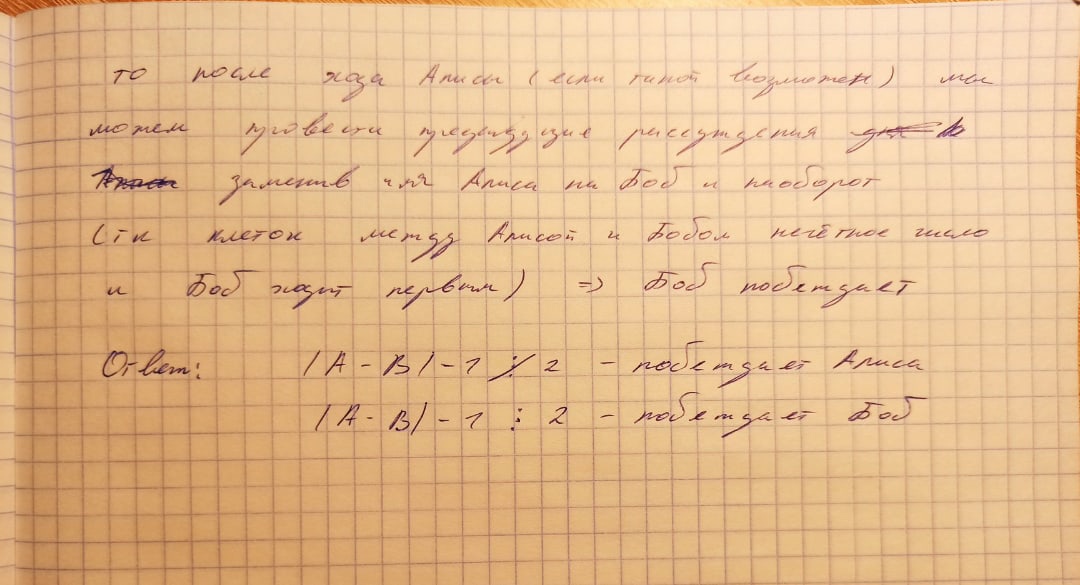 то после хода Алисы (если такой возможен) мы
можем провести предыдущие рассуждения
заменив имя Алиса на Боб и наоборот
(тк клеток между Алисой и Бобом нечётное число
и Боб ходит первым) => Боб побеждает
Ответ: |A - B| - 1 ⋮̸ 2 - побеждает Алиса
|A - B| - 1 ⋮ 2 - побеждает Боб